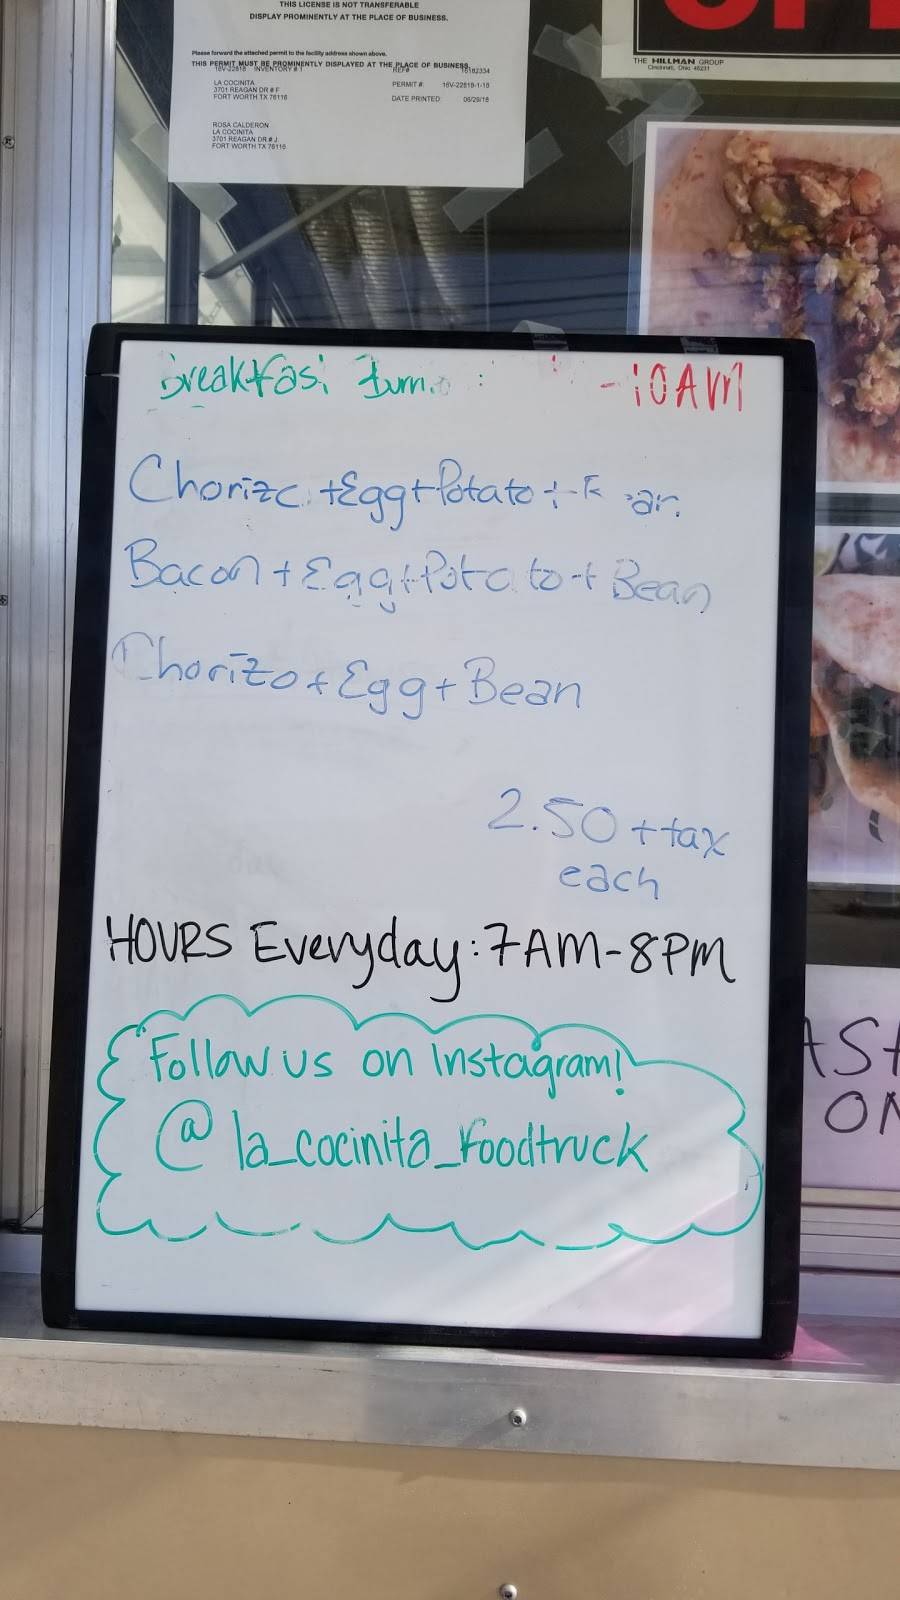 THIS LICENSE IS NOT TRANSFERABLE
DISPLAY PROMINENTLY AT THE PLACE OF BUSINESS.
Please forward the attached permit to the facility address shown above.
THIS PERMIT MUST BE PROMINENTLY DISPLAYED AT THE PLACE OF BUSINESS.
16V-22818 INVENTORY # 1 REF# 16182334
LA COCINITA PERMIT #: 16V-22818-1-18
3701 REAGAN DR # F
FORT WORTH TX 76116 DATE PRINTED: 06/29/18
ROSA CALDERON
LA COCINITA
3701 REAGAN DR # J
FORT WORTH TX 76116
THE HILLMAN GROUP
Cincinnati, Ohio 45231
Breakfas -10AM
Chorizo +Egg+Potato+
Bacon+Egg+Potato+Bean
Chorizo+Egg+Bean
2.50 +tax
each
HOURS Everyday: 7AM-8PM
Follow us on Instagram!
@la_cocinita_foodtruck